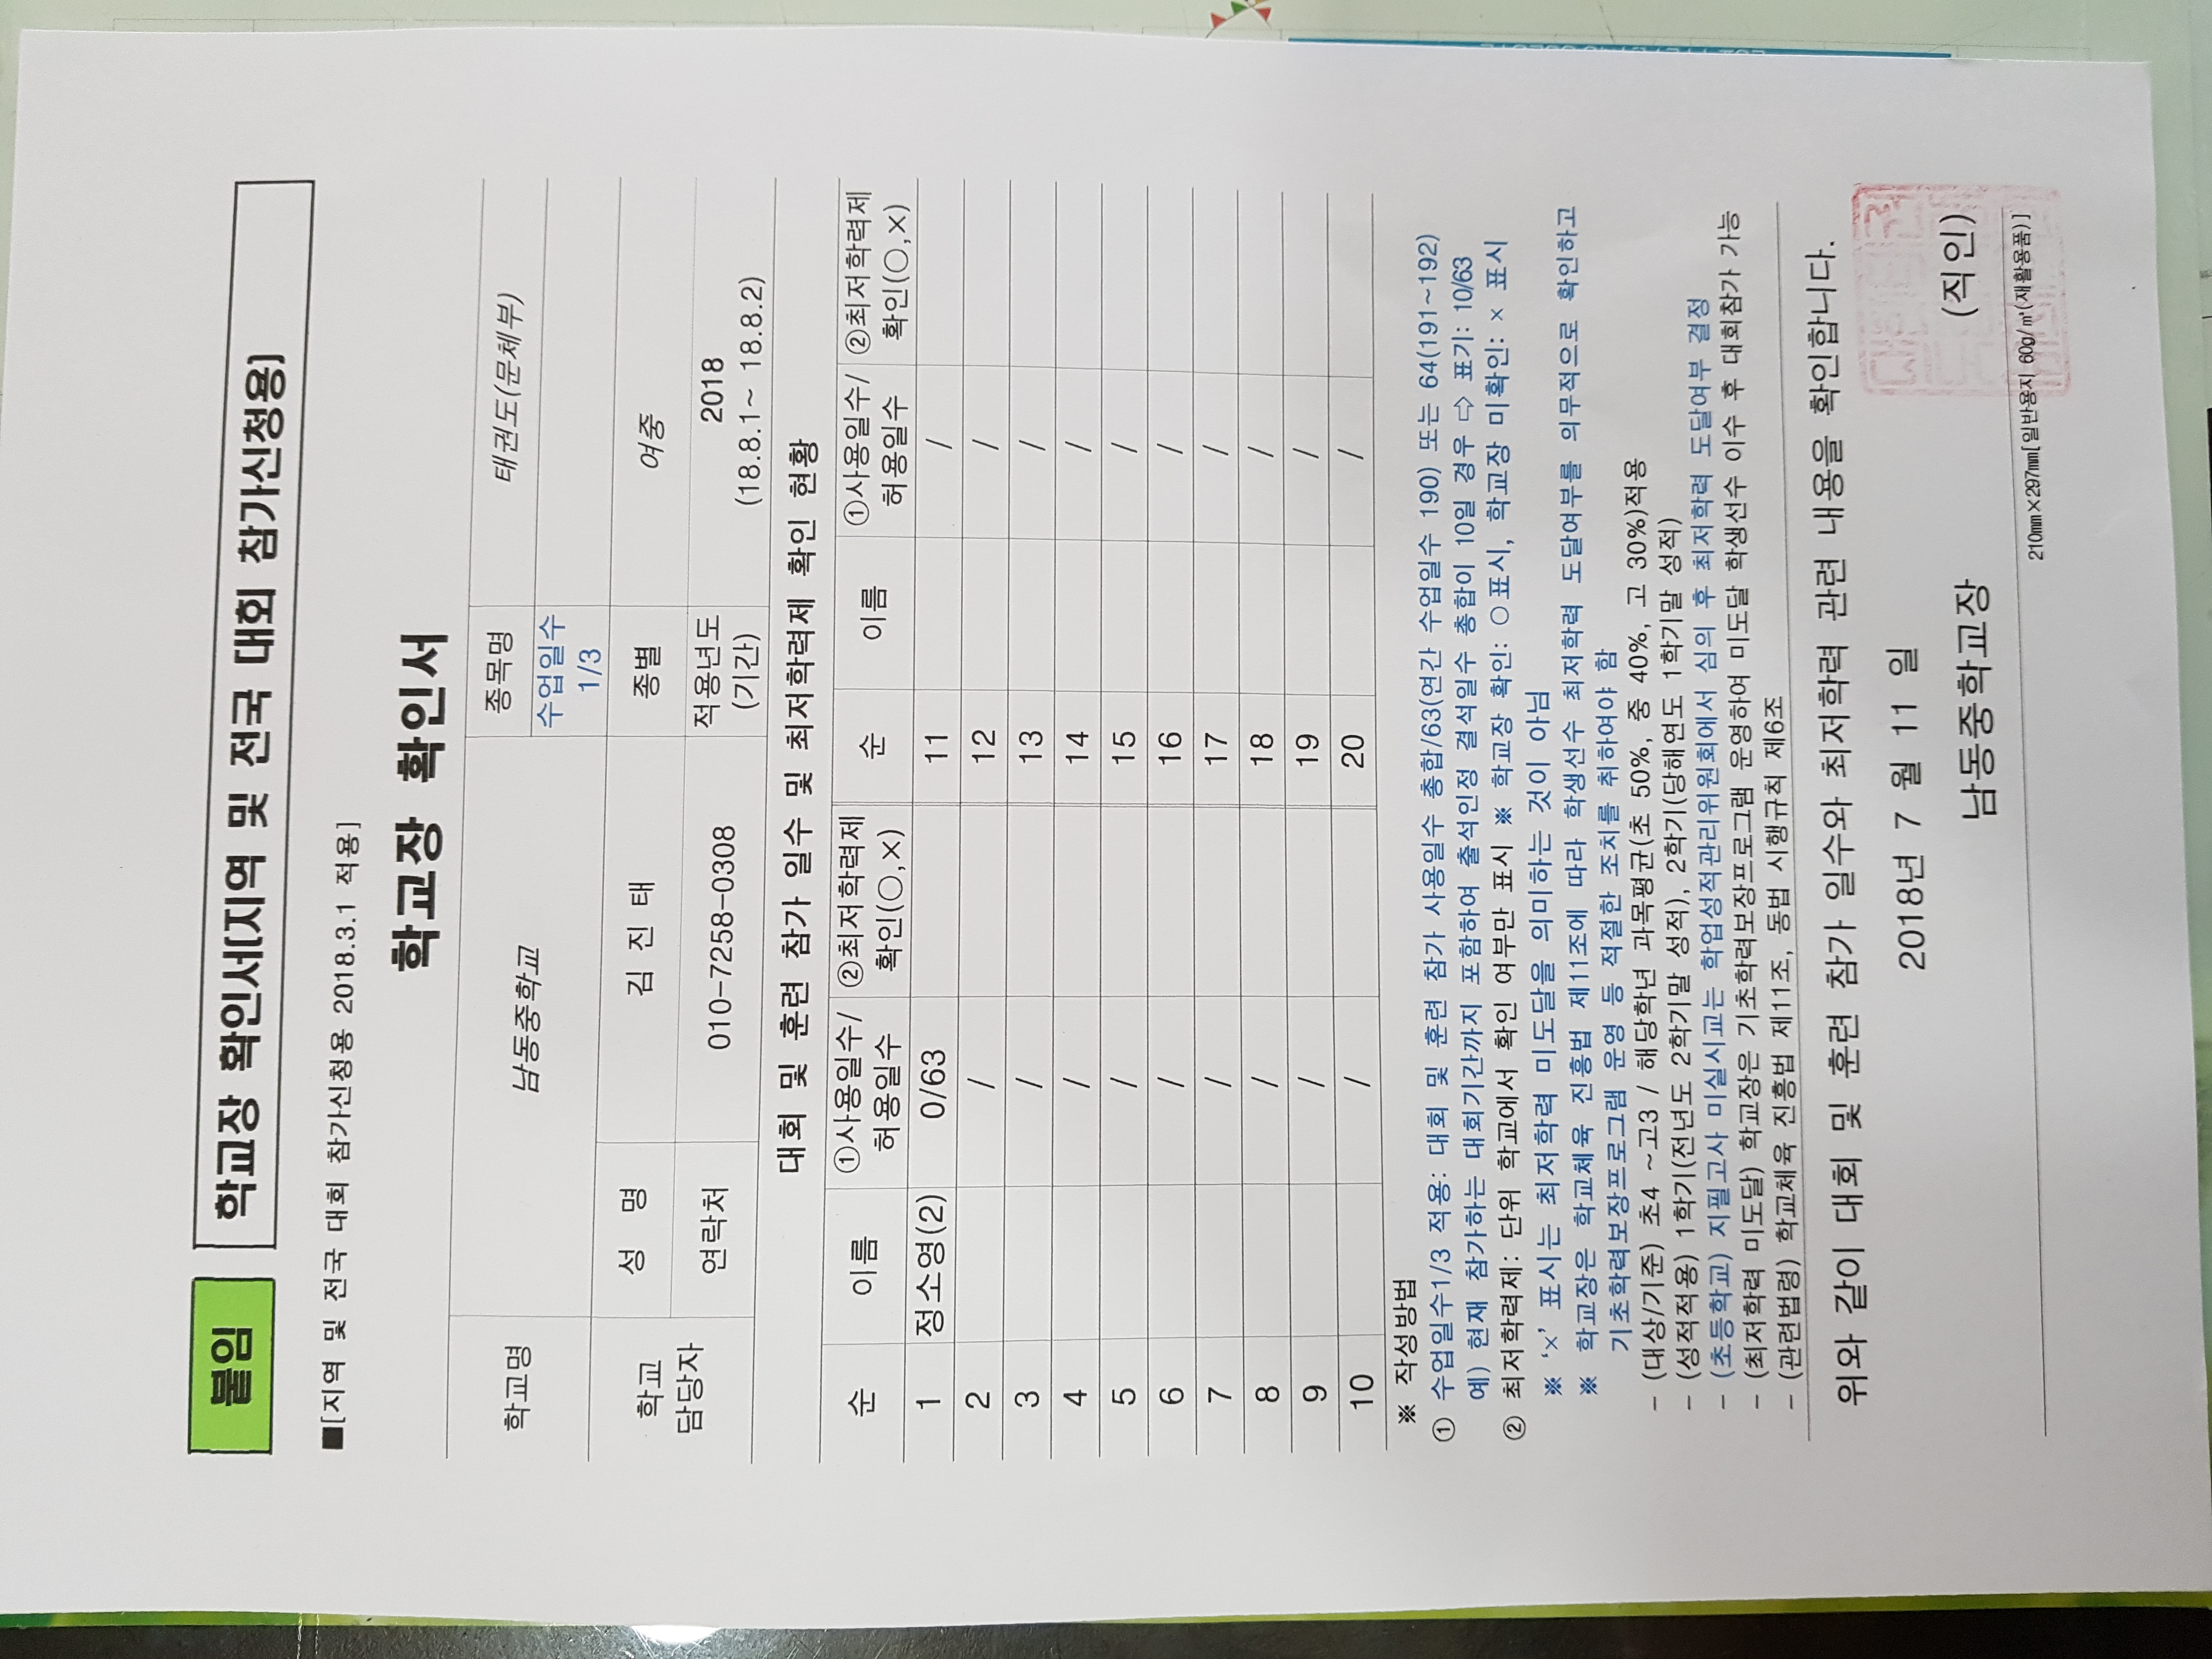 붙임
학교장 확인서[지역 및 전국 대회 참가신청용]
■[지역 및 전국 대회 참가신청용 2018.3.1 적용]
학교장 확인서
학교명 남동중학교 종목명 태권도(문체부)
수업일수 1/3
학교 담당자 성 명 김 진 태 종별 여중
연락처 010-7258-0308 적용년도 (기간) 2018 (18.8.1~ 18.8.2)
대회 및 훈련 참가 일수 및 최저학력제 확인 현황
순 이름 ①사용일수/허용일수 ②최저학력제 확인(○,×) 순 이름 ①사용일수/허용일수 ②최저학력제 확인(○,×)
1 정소영(2) 0/63 11 /
2 / 12 /
3 / 13 /
4 / 14 /
5 / 15 /
6 / 16 /
7 / 17 /
8 / 18 /
9 / 19 /
10 / 20 /
※ 작성방법
① 수업일수1/3 적용: 대회 및 훈련 참가 사용일수 총합/63(연간 수업일수 190) 또는 64(191~192)
예) 현재 참가하는 대회기간까지 포함하여 출석인정 결석일수 총합이 10일 경우 ⇨ 표기: 10/63
② 최저학력제: 단위 학교에서 확인 여부만 표시 ※ 학교장 확인: ○표시, 학교장 미확인: × 표시
※ ‘×’ 표시는 최저학력 미도달을 의미하는 것이 아님
※ 학교장은 학교체육 진흥법 제11조에 따라 학생선수 최저학력 도달여부를 의무적으로 확인하고
기초학력보장프로그램 운영 등 적절한 조치를 취하여야 함
- (대상/기준) 초4 ~고3 / 해당학년 과목평균(초 50%, 중 40%, 고 30%)적용
- (성적적용) 1학기(전년도 2학기말 성적), 2학기(당해연도 1학기말 성적)
- (초등학교) 지필고사 미실시교는 학업성적관리위원회에서 심의 후 최저학력 도달여부 결정
- (최저학력 미도달) 학교장은 기초학력보장프로그램 운영하여 미도달 학생선수 이수 후 대회참가 가능
- (관련법령) 학교체육 진흥법 제11조, 동법 시행규칙 제6조
위와 같이 대회 및 훈련 참가 일수와 최저학력 관련 내용을 확인합니다.
2018년 7 월 11 일
남동중학교장 (직인)
210㎜×297㎜[일반용지 60g/㎡(재활용품)]